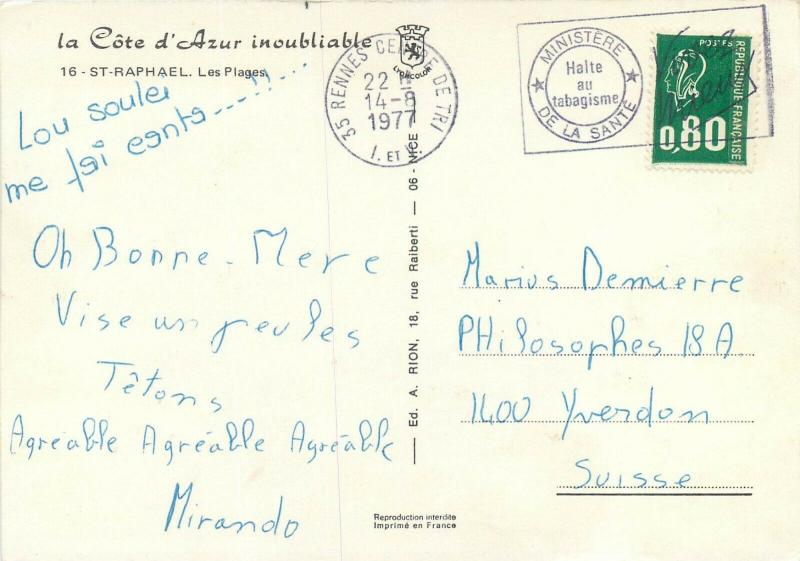 la Côte d'Azur inoubliable
16 - ST-RAPHAEL. Les Plages
LYONCOLOR
Lou souleu
me fai canta---!!---
Oh Bonne-Mere
Vise un peu les
Têtons
Agréable Agréable Agréable
Mirando
35 RENNES CENTRE DE TRI
22 H
14-8
1977
I. ET V.
MINISTÈRE
DE LA SANTÉ
Halte
au
tabagisme
POSTES
REPUBLIQUE FRANÇAISE
0,80
Ed. A. RION, 18, rue Raiberti — 06 - NICE
Marius Demierre
PHilosophes 18 A
1400 Yverdon
Suisse
Reproduction interdite
Imprimé en France